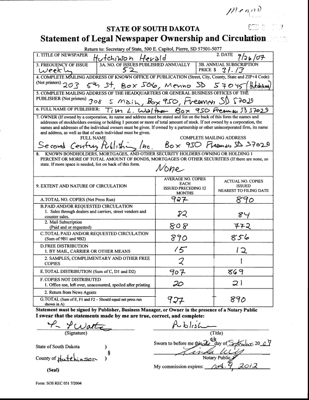 Menno
STATE OF SOUTH DAKOTA
Statement of Legal Newspaper Ownership and Circulation
Return to: Secretary of State, 500 E. Capitol, Pierre, SD 57501-5077
1. TITLE OF NEWSPAPER Hutchinson Herald 2. DATE 9/26/07
3. FREQUENCY OF ISSUE Weekly 3A. NO. OF ISSUES PUBLISHED ANNUALLY 52 3B. ANNUAL SUBSCRIPTION PRICE $
4. COMPLETE MAILING ADDRESS OF KNOWN OFFICE OF PUBLICATION (Street, City, County, State and ZIP+4 Code)
(Not printers) 203 5th St, Box 506, Menno SD 57045 (Hutchinson)
5. COMPLETE MAILING ADDRESS OF THE HEADQUARTERS OF GENERAL BUSINESS OFFICES OF THE
PUBLISHER (Not printer) 708 S Main, Box 950, Freeman SD 57029
6. FULL NAME OF PUBLISHER: Tim L. Waltner Box 950 Freeman SD 57029
7. OWNER (If owned by a corporation, its name and address must be stated and also on the back of this form the names and
addresses of stockholders owning or holding 1 percent or more of total amount of stock. If not owned by a corporation, the
names and addresses of the individual owners must be given. If owned by a partnership or other unincorporated firm, its name
and address, as well as that of each individual must be given.
FULL NAME COMPLETE MAILING ADDRESS
Second Century Publishing Inc Box 950 Freeman SD 57029
8. KNOWN BONDHOLDERS, MORTGAGES, AND OTHER SECURITY HOLDERS OWNING OR HOLDING 1
PERCENT OR MORE OF TOTAL AMOUNT OF BONDS, MORTGAGES OR OTHER SECURITIES (If there are none, so
state. If more space is needed, list on back of this form.
None
9. EXTENT AND NATURE OF CIRCULATION
AVERAGE NO. COPIES EACH ISSUED PRECEDING 12 MONTHS
ACTUAL NO. COPIES ISSUED NEAREST TO FILING DATE
A. TOTAL NO. COPIES (Net Press Run) 927 890
B. PAID AND/OR REQUESTED CIRCULATION
1. Sales through dealers and carriers, street vendors and
counter sales. 82 84
2. Mail Subscription
(Paid and or requested) 808 772
C. TOTAL PAID AND/OR REQUESTED CIRCULATION
(Sum of 9B1 and 9B2) 890 856
D. FREE DISTRIBUTION
1. BY MAIL, CARRIER OR OTHER MEANS 15 12
2. SAMPLES, COMPLIMENTARY AND OTHER FREE
COPIES 2 1
E. TOTAL DISTRIBUTION (Sum of C, D1 and D2) 907 869
F. COPIES NOT DISTRIBUTED
1. Office use, left over, unaccounted, spoiled after printing 20 21
2. Return from News Agents
G. TOTAL (Sum of E, F1 and F2 - Should equal net press run
shown in A) 927 890
Statement must be signed by Publisher, Business Manager, or Owner in the presence of a Notary Public
I swear that the statements made by me are true, correct, and complete:
(Signature) (Title)
State of South Dakota )
§
County of Hutchinson )
Sworn to before me this day of September, 20 07
Notary Public
(Seal)
My commission expires: 2012
Form: SOS REC 051 7/2004